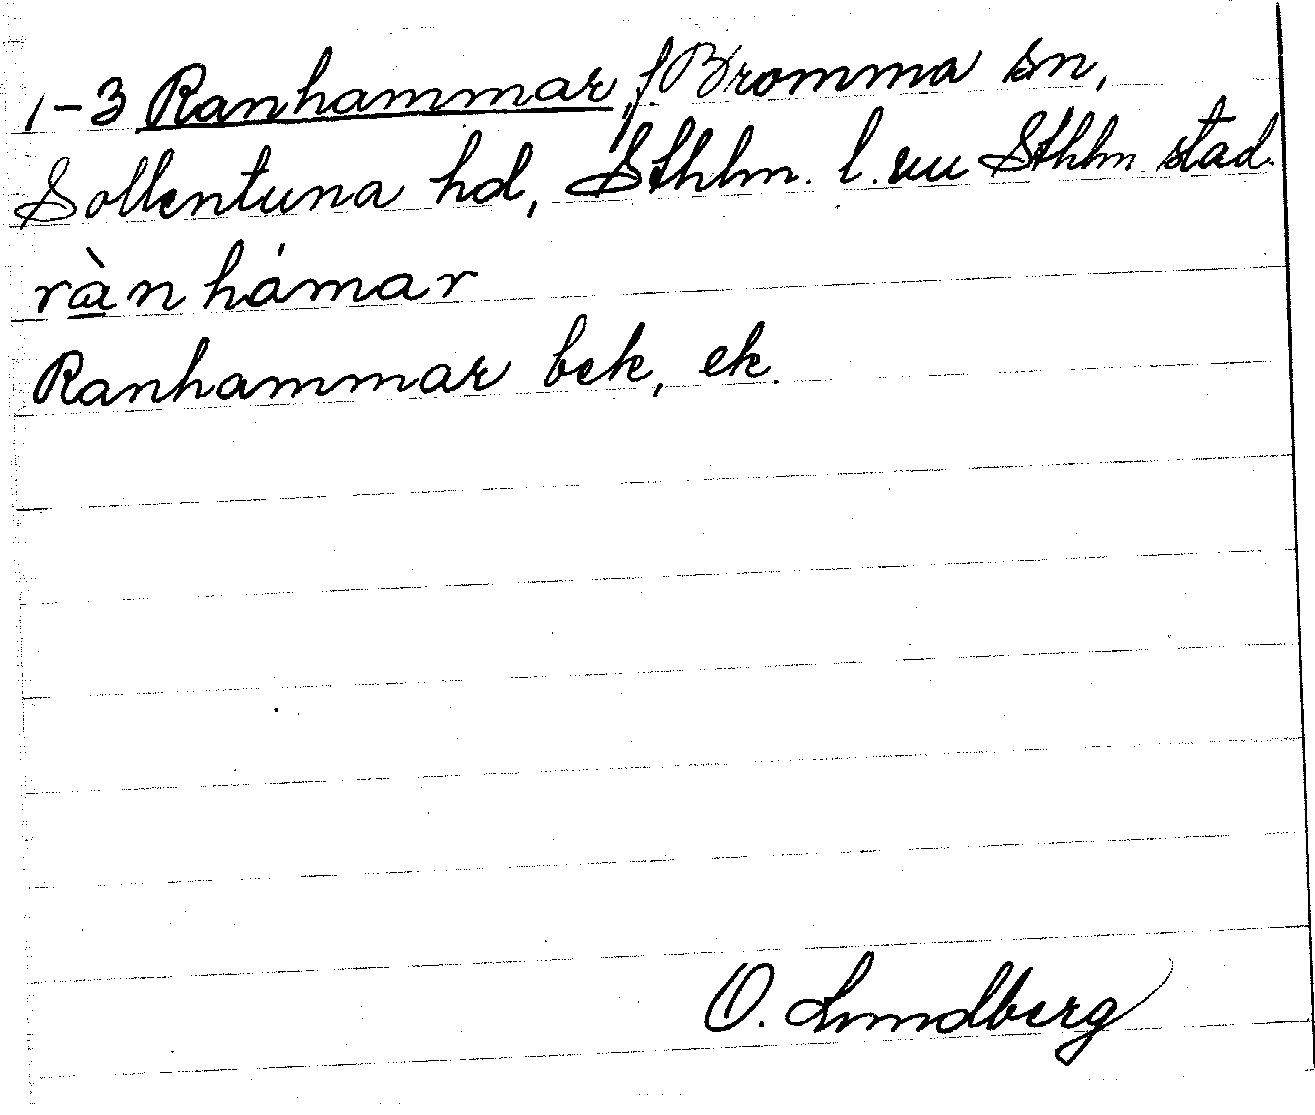 1-3 Ranhammar, f Bromma sn,
Sollentuna hd, Sthlm. l. nu Sthlm stad.
ràn hámar
Ranhammar bek, ek.
O. Lundberg